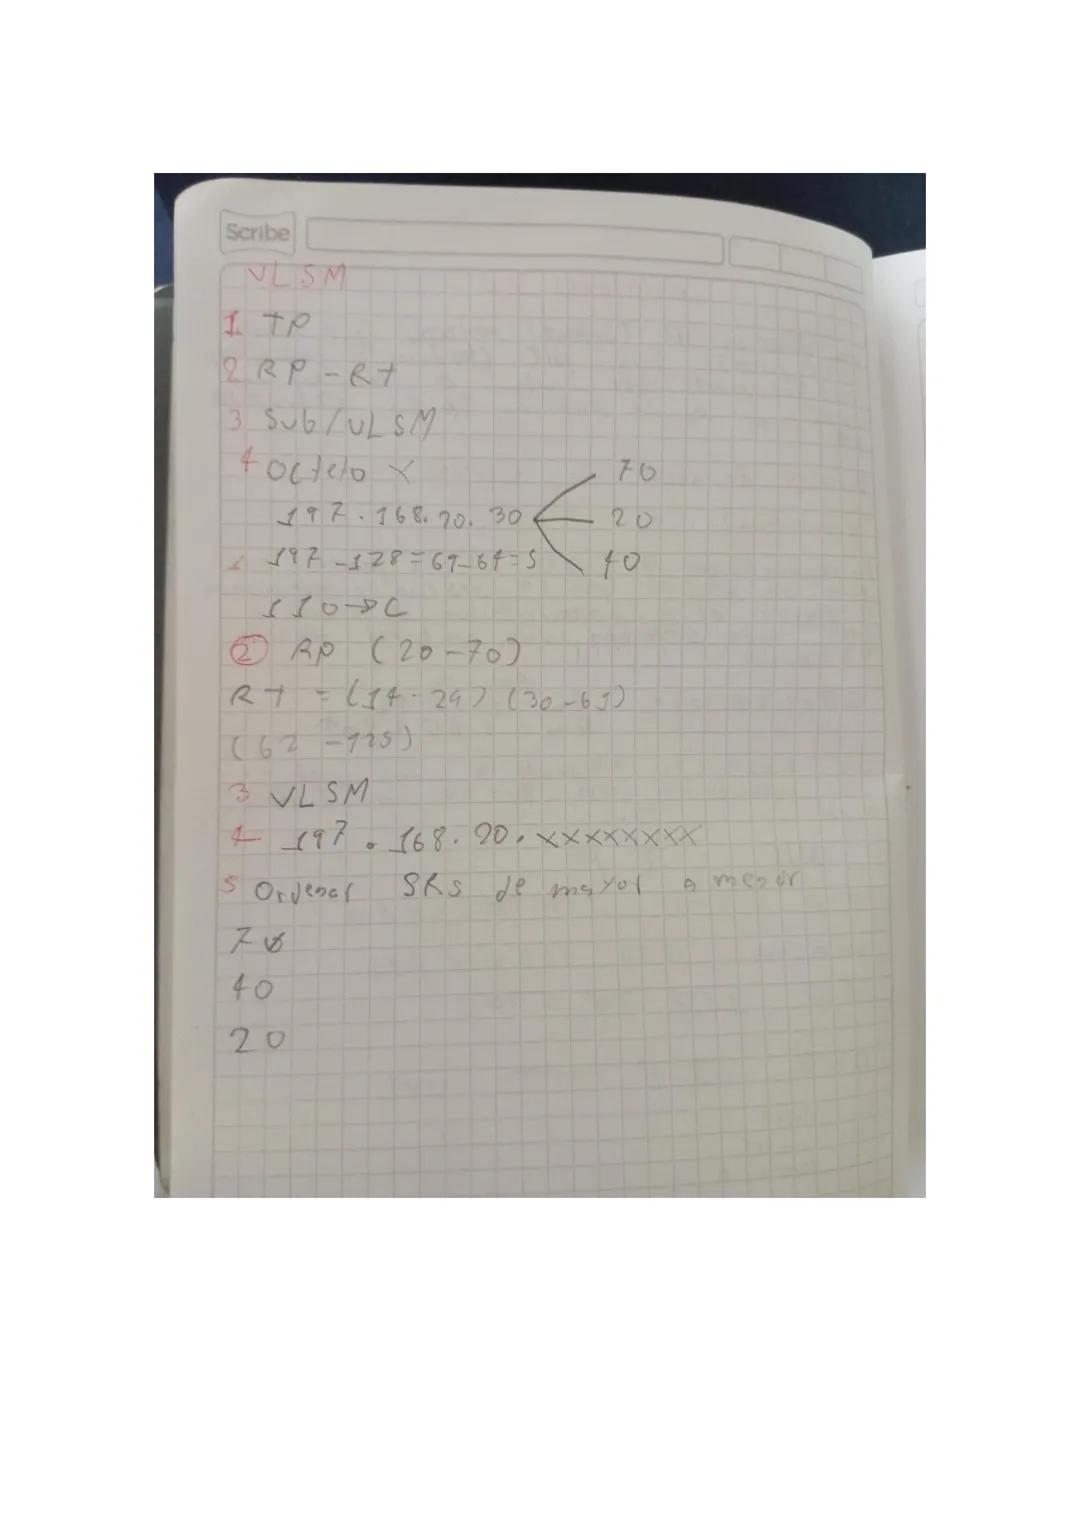 Scribe
VLSM
1 TP
2 RP - RT
3 Sub/VLSM
4 Octeto X
70
197.168.20.30
20
1 197-128=69-64=5
40
110→C
2 RP (20-70)
RT =(14-29) (30-61)
(62-125)
3 VLSM
4 197.168.20.XXXXXXXX
5 Ordenar SRs de mayor a menor
70
40
20